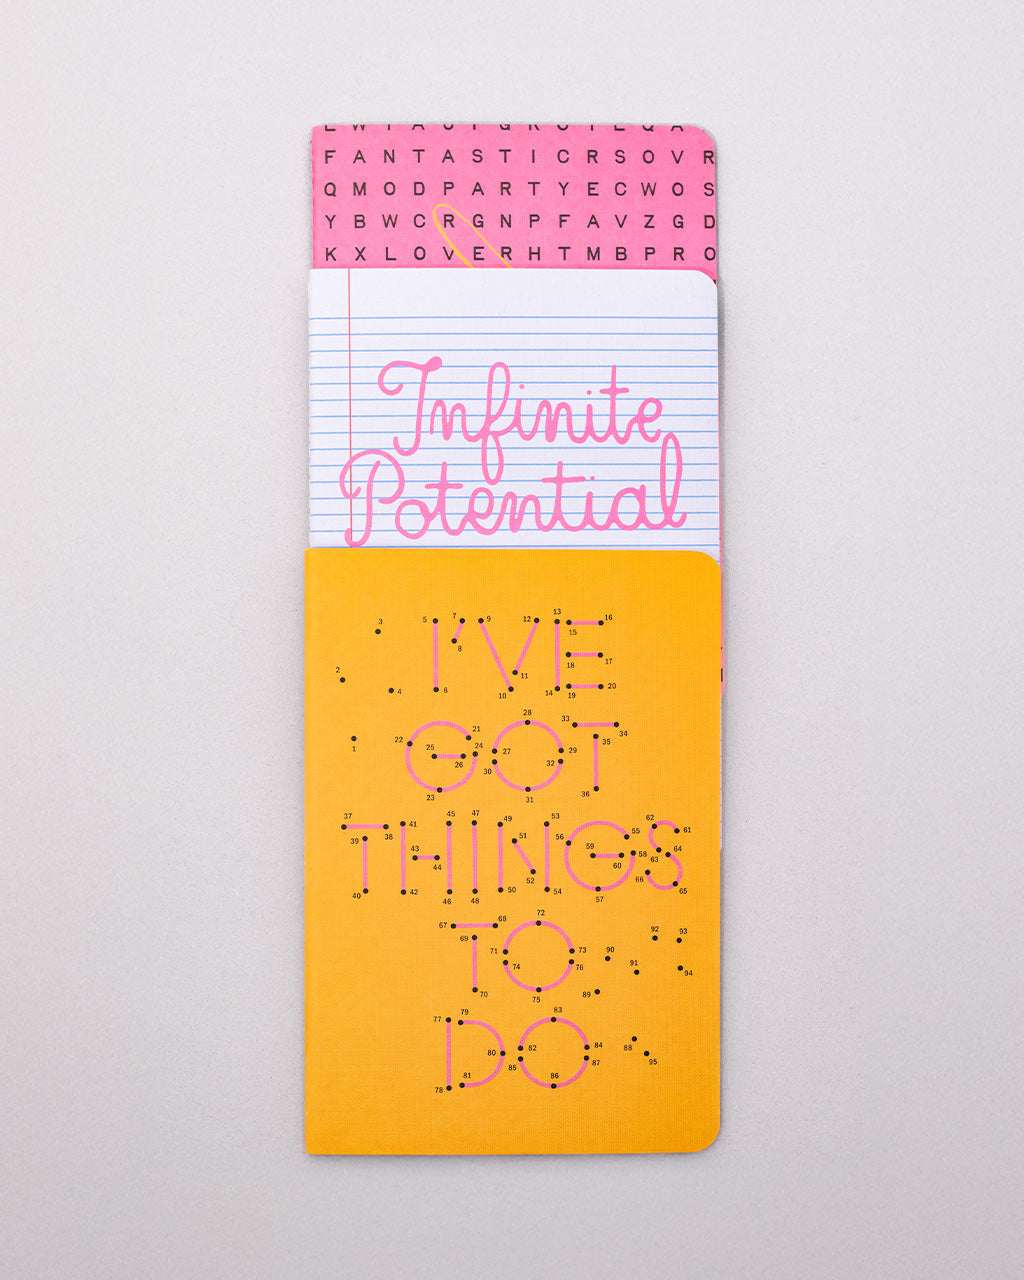 F A N T A S T I C R S O V R
Q M O D P A R T Y E C W O S
Y B W C R G N P F A V Z G D
K X L O V E R H T M B P R O
Infinite
Potential
3 5 7 9 12 13 16
8 15
2 11 18 17
4 6 10 14 19 20
1 22 25 21 24 28 33
26 27 29 35 34
30 32
23 31 36
I'VE
GOT
37 41 45 47 49 53 62 61
39 38 51 56 55
43 59 58 64
44 52 60 63
40 42 46 48 50 54 57 66 65
THINGS
67 68 72 92 93
69 71 73 90
74 76 91 94
70 75 89
TO
77 79 83
80 82 84 88
81 85 87 95
78 86
DO